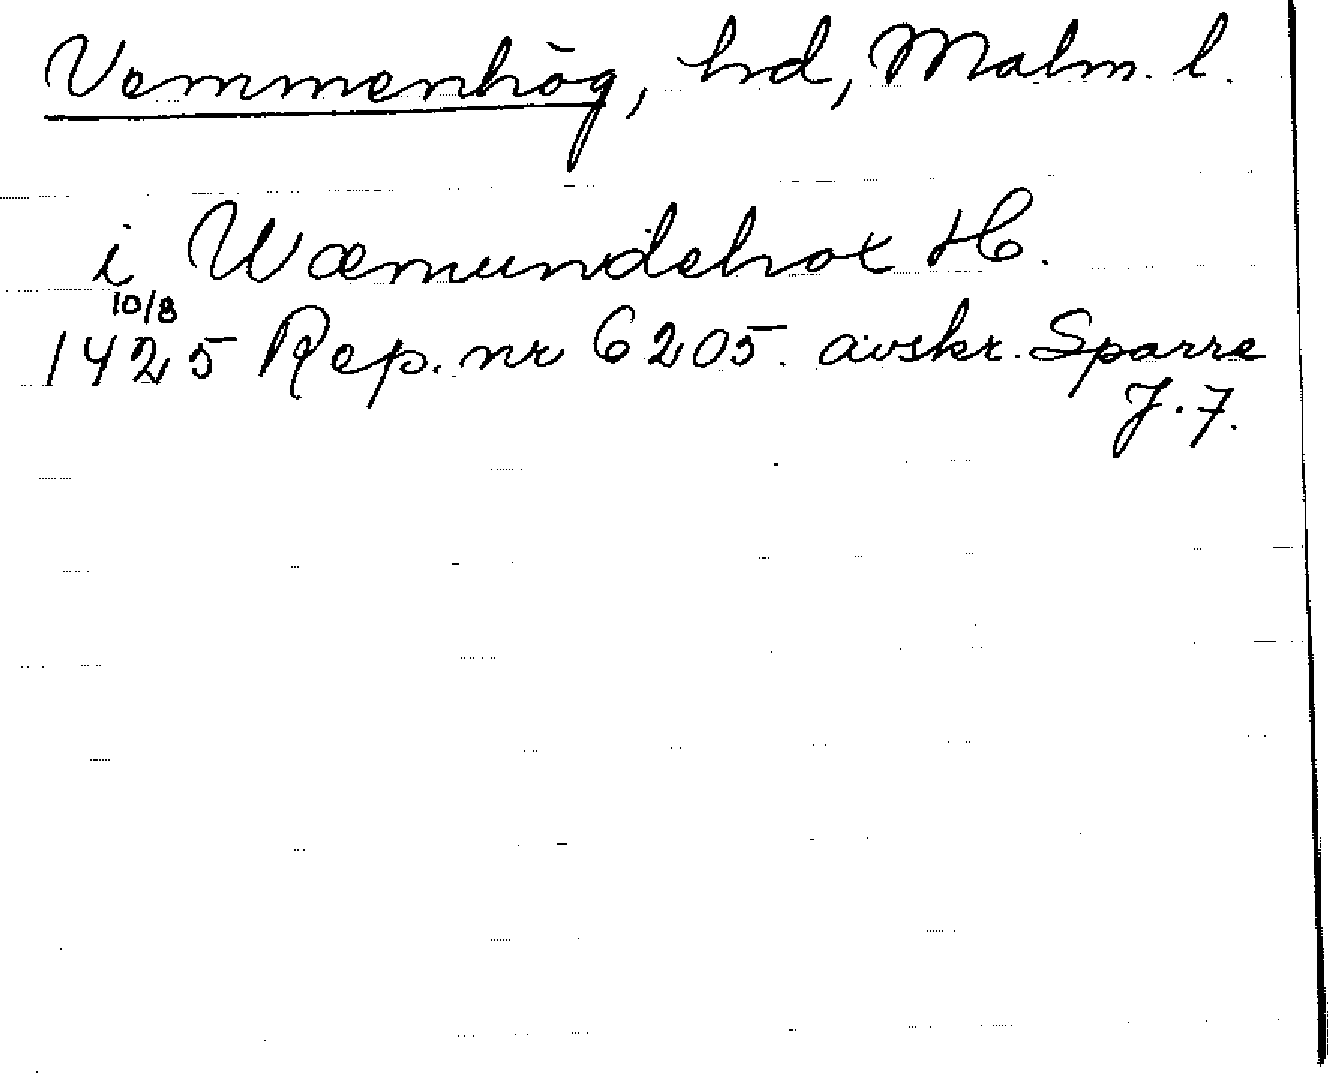 Vemmenhög, hrd, Malm. l.
i Wæmundehox H.
10/8
1425 Rep. nr 6205. avskr. Sparre
J. 7.